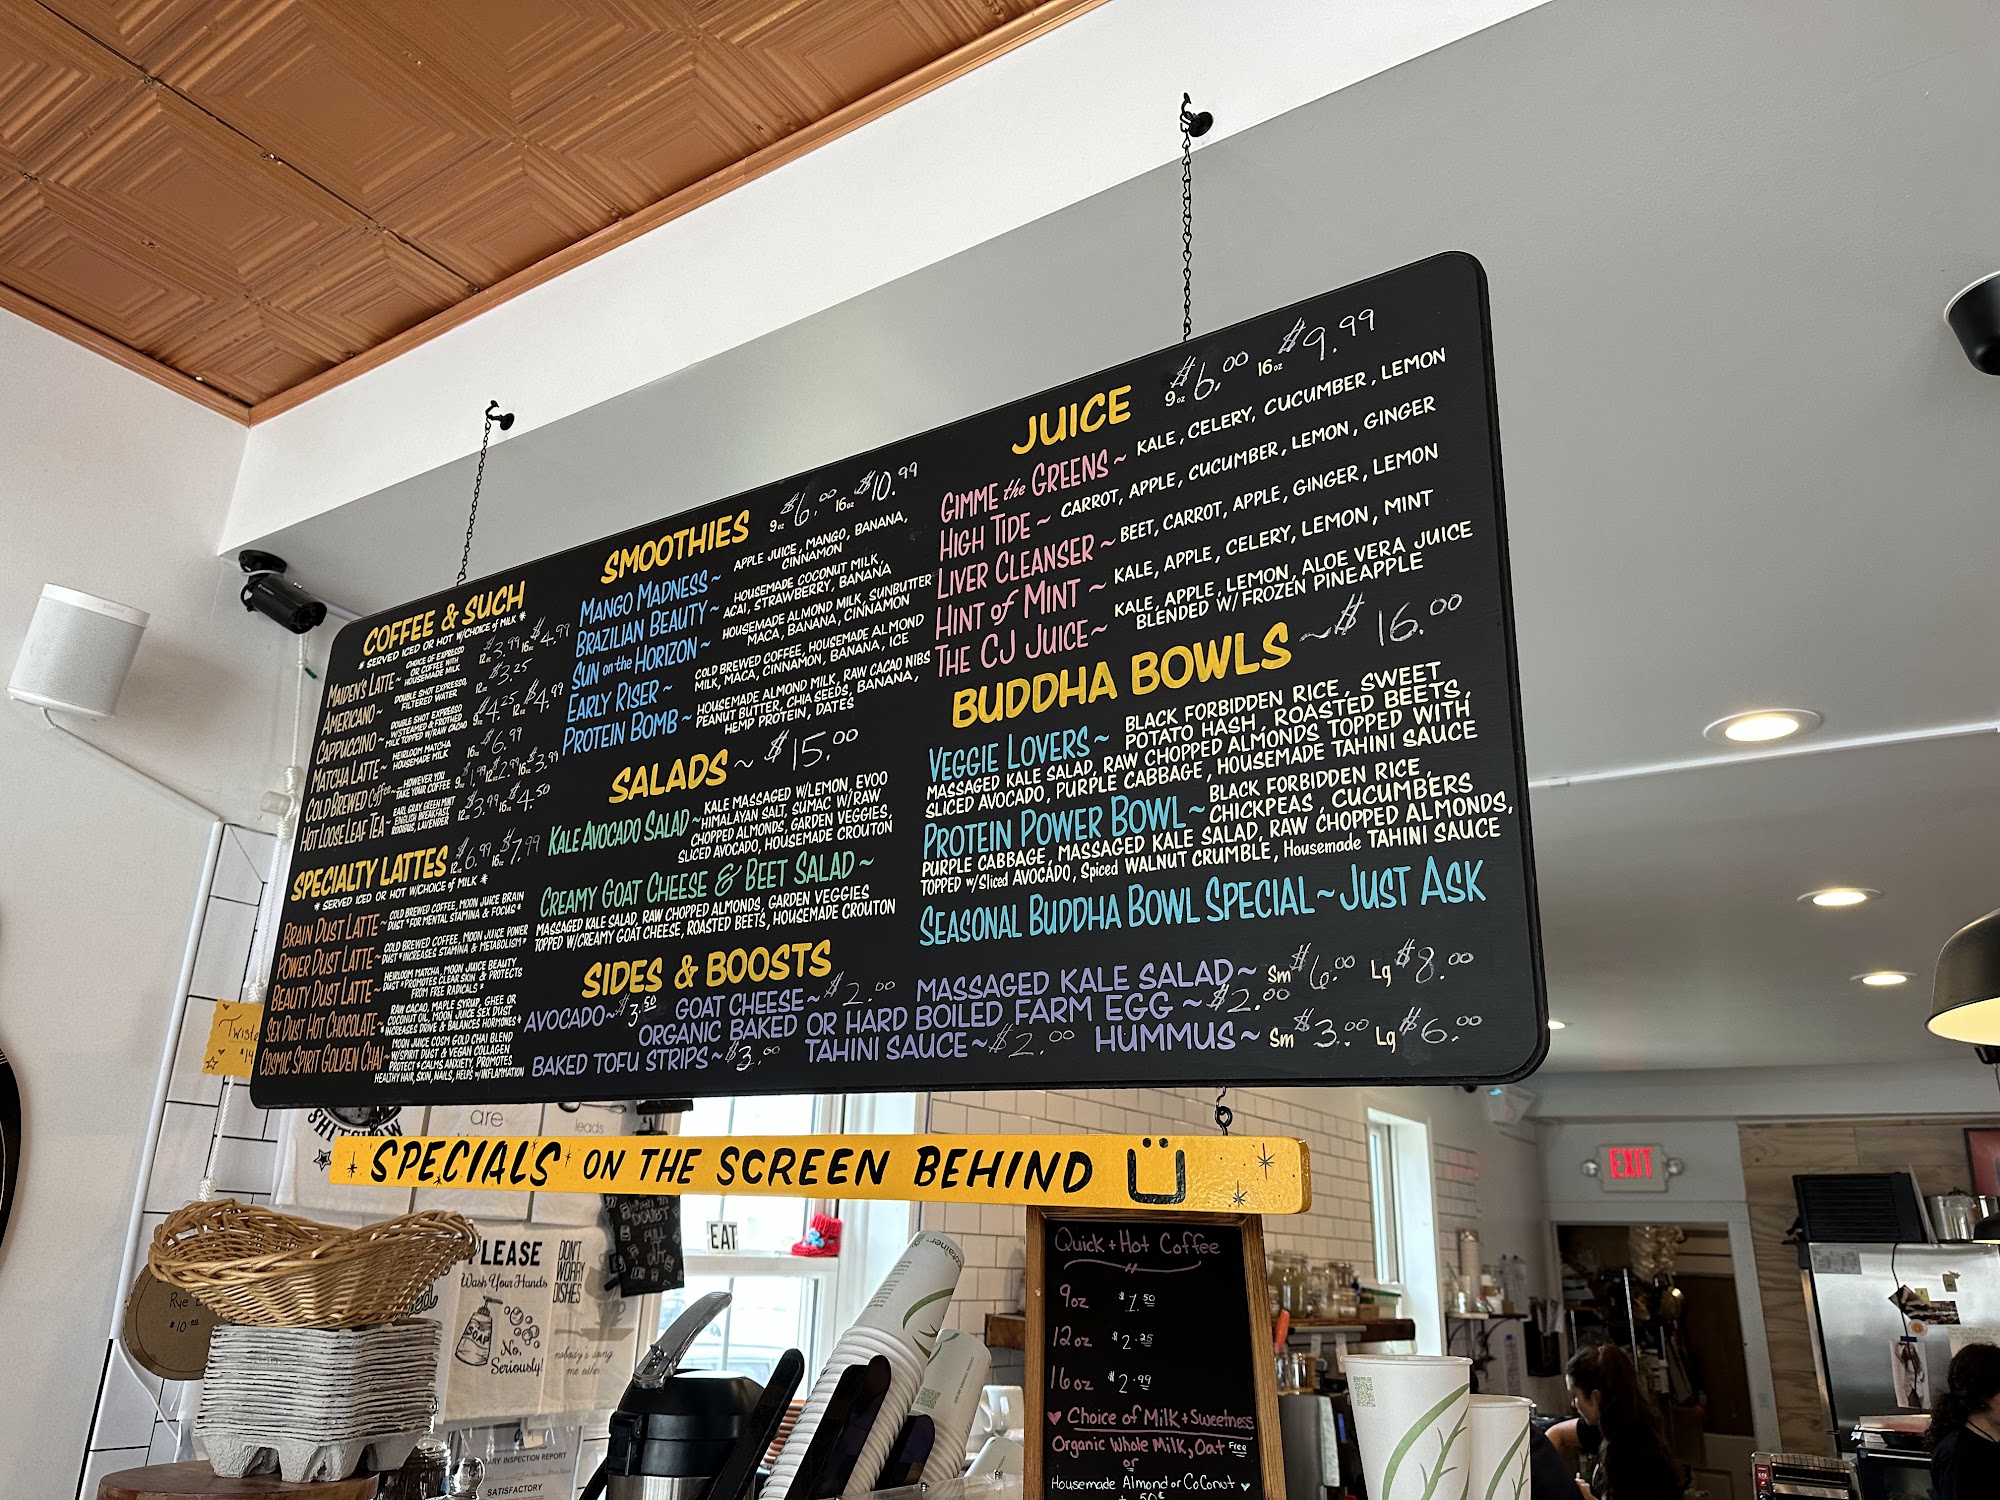 COFFEE & SUCH
* SERVED ICED OR HOT W/CHOICE of MILK *
12oz $3.99 16oz $4.99
MAIDEN'S LATTE~ CHOICE OF ESPRESSO
OR COFFEE WITH
HOUSEMADE MILK
AMERICANO~ DOUBLE SHOT ESPRESSO,
FILTERED WATER
12oz $3.25
CAPPUCCINO~ DOUBLE SHOT ESPRESSO
W/STEAMED & FROTHED
MILK TOPPED W/RAW CACAO
9oz $4.25 12oz $4.99
MATCHA LATTE~ HEIRLOOM MATCHA
HOUSEMADE MILK
16oz $6.99
COLD BREWED Coffee~ HOWEVER YOU
TAKE YOUR COFFEE
9oz $1.99 12oz $2.99 16oz $3.99
HOT LOOSE LEAF TEA~ EARL GRAY, GREEN MINT
ENGLISH BREAKFAST,
ROOIBUS, LAVENDER
12oz $3.99 16oz $4.50
SPECIALTY LATTES 12oz $6.99 16oz $7.99
* SERVED ICED OR HOT W/CHOICE of MILK *
BRAIN DUST LATTE~ COLD BREWED COFFEE, MOON JUICE BRAIN
DUST *FOR MENTAL STAMINA & FOCUS*
POWER DUST LATTE~ COLD BREWED COFFEE, MOON JUICE POWER
DUST *INCREASES STAMINA & METABOLISM*
BEAUTY DUST LATTE~ HEIRLOOM MATCHA, MOON JUICE BEAUTY
DUST *PROMOTES CLEAR SKIN & PROTECTS
FROM FREE RADICALS *
SEX DUST HOT CHOCOLATE~ RAW CACAO, MAPLE SYRUP, GHEE OR
COCONUT OIL, MOON JUICE SEX DUST
*INCREASES DRIVE & BALANCES HORMONES*
COSMIC SPIRIT GOLDEN CHAI~ MOON JUICE COSM GOLD CHAI BLEND
W/SPIRIT DUST & VEGAN COLLAGEN
PROTECT & CALMS ANXIETY, PROMOTES
HEALTHY HAIR, SKIN, NAILS, HELPS w/INFLAMMATION
SMOOTHIES 9oz $6.00 16oz $10.99
MANGO MADNESS~ APPLE JUICE, MANGO, BANANA,
CINNAMON
BRAZILIAN BEAUTY~ HOUSEMADE COCONUT MILK,
ACAI, STRAWBERRY, BANANA
SUN on the HORIZON~ HOUSEMADE ALMOND MILK, SUNBUTTER
MACA, BANANA, CINNAMON
EARLY RISER~ COLD BREWED COFFEE, HOUSEMADE ALMOND
MILK, MACA, CINNAMON, BANANA, ICE
PROTEIN BOMB~ HOUSEMADE ALMOND MILK, RAW CACAO NIBS
PEANUT BUTTER, CHIA SEEDS, BANANA,
HEMP PROTEIN, DATES
SALADS~ $15.00
KALE AVOCADO SALAD~ KALE MASSAGED W/LEMON, EVOO
HIMALAYAN SALT, SUMAC W/RAW
CHOPPED ALMONDS, GARDEN VEGGIES,
SLICED AVOCADO, HOUSEMADE CROUTON
CREAMY GOAT CHEESE & BEET SALAD~
MASSAGED KALE SALAD, RAW CHOPPED ALMONDS, GARDEN VEGGIES
TOPPED W/CREAMY GOAT CHEESE, ROASTED BEETS, HOUSEMADE CROUTON
JUICE 9oz $6.00 16oz $9.99
GIMME the GREENS~ KALE, CELERY, CUCUMBER, LEMON
HIGH TIDE~ CARROT, APPLE, CUCUMBER, LEMON, GINGER
LIVER CLEANSER~ BEET, CARROT, APPLE, GINGER, LEMON
HINT of MINT~ KALE, APPLE, CELERY, LEMON, MINT
THE CJ JUICE~ KALE, APPLE, LEMON, ALOE VERA JUICE
BLENDED W/ FROZEN PINEAPPLE
BUDDHA BOWLS~ $16.00
VEGGIE LOVERS~ BLACK FORBIDDEN RICE, SWEET
POTATO HASH, ROASTED BEETS,
MASSAGED KALE SALAD, RAW CHOPPED ALMONDS TOPPED WITH
SLICED AVOCADO, PURPLE CABBAGE, HOUSEMADE TAHINI SAUCE
PROTEIN POWER BOWL~ BLACK FORBIDDEN RICE,
CHICKPEAS, CUCUMBERS
PURPLE CABBAGE, MASSAGED KALE SALAD, RAW CHOPPED ALMONDS,
TOPPED w/Sliced AVOCADO, Spiced WALNUT CRUMBLE, Housemade TAHINI SAUCE
SEASONAL BUDDHA BOWL SPECIAL~JUST ASK
SIDES & BOOSTS
AVOCADO~$3.50 GOAT CHEESE~$2.00 MASSAGED KALE SALAD~ Sm $6.00 Lg $8.00
ORGANIC BAKED OR HARD BOILED FARM EGG~$2.00
BAKED TOFU STRIPS~$3.00 TAHINI SAUCE~$2.00 HUMMUS~ Sm $3.00 Lg $6.00
SPECIALS ON THE SCREEN BEHIND
Twist
SHITSHOW
are
leads
EAT
EXIT
PLEASE
Wash Your Hands
SOAP
No,
Seriously!
DON'T
WORRY
DISHES
nobody's doing
me either
Rye
$10
INSPECTION REPORT
SATISFACTORY
Quick + Hot Coffee
9oz $1.50
12oz $2.25
16oz $2.99
Choice of Milk + Sweetness
Organic Whole Milk, Oat Free
or
Housemade Almond or CoConut
+ 50¢